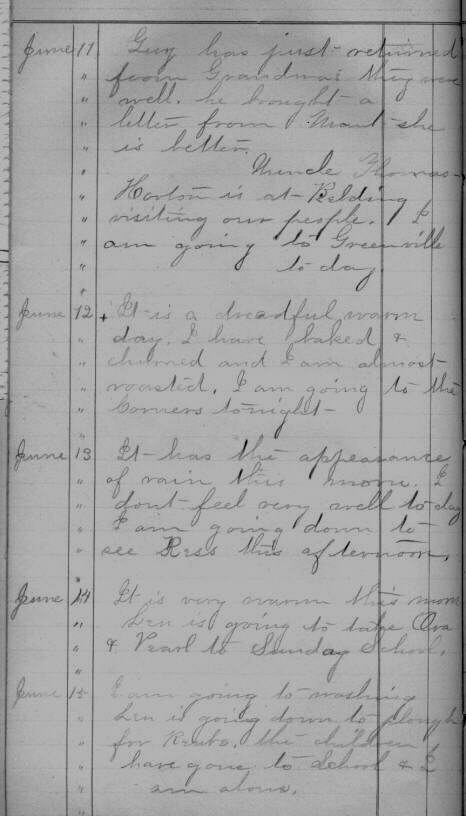 June 11 Guy has just returned
" from Grandmas they were
" well. he brought a
" letter from Maut she
" is better.
" Uncle Thomas
" Horton is at Belding
" visiting our people. I
" am going to Greenville
" to day.
"
June 12 + It is a dreadful warm
" day. I have baked &
" churned and I am almost
" roasted. I am going to the
" Corners tonight
"
June 13 It has the appearance
" of rain this morn. I
" dont feel very well to day
" I am going down to
" see Ress this afternoon.
"
June 14 It is very warm this morn
" Len is going to take Ora
" & Pearl to Sunday School.
"
June 15 I am going to washing
" Len is going down to plough
" for the children
" have gone to School & I
" am alone.
"